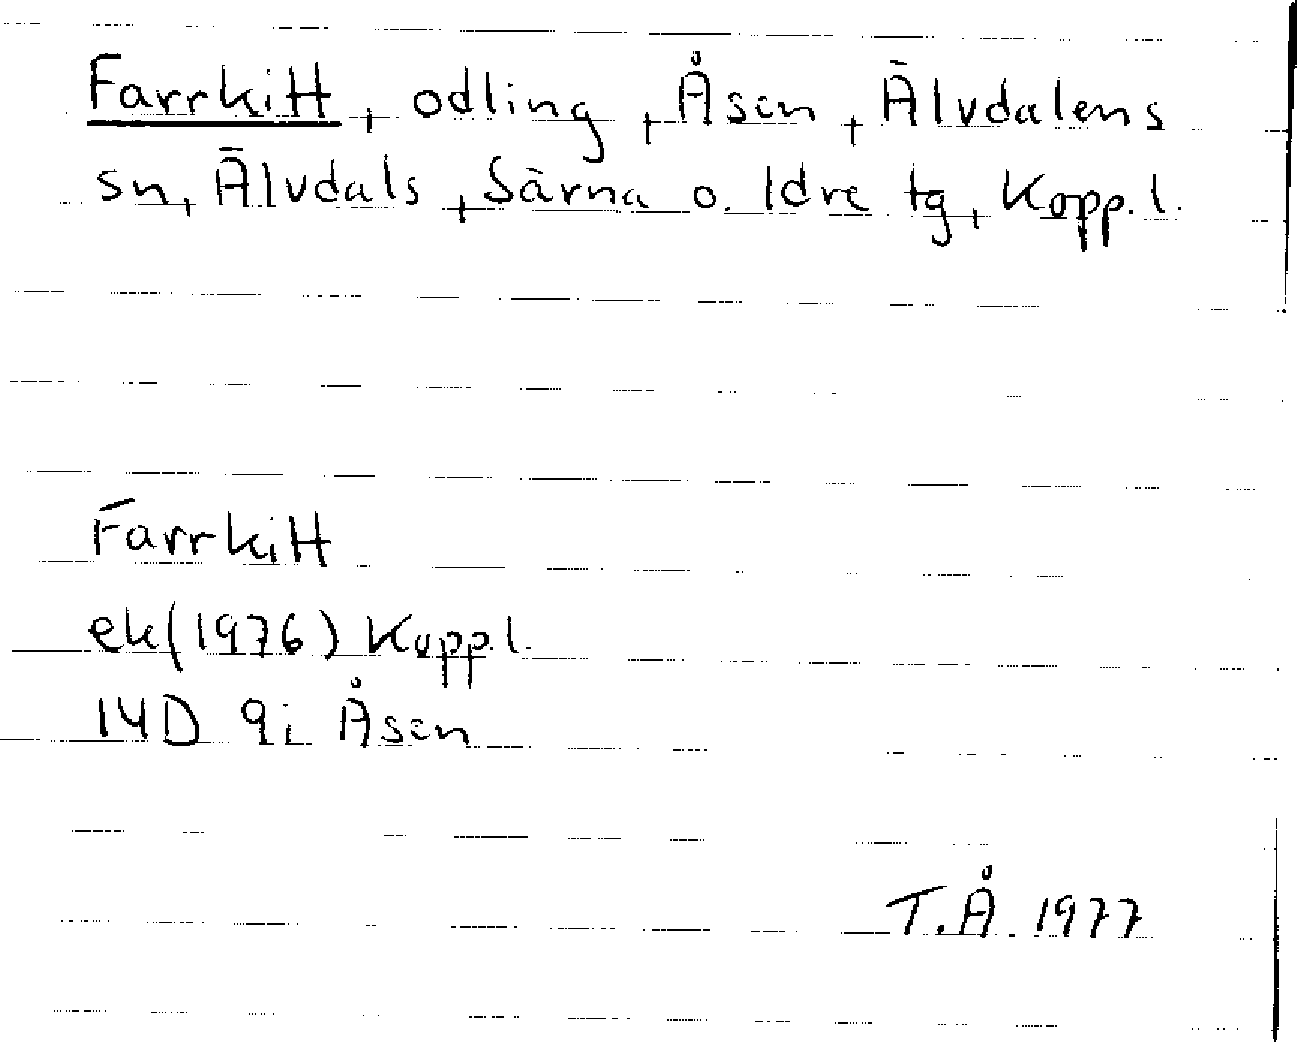 Farrkitt, odling, Åsen, Älvdalens
sn, Älvdals, Särna o. Idre tg, Kopp. l.
Farrkitt
ek (1976) Kopp. l.
14D 9i Åsen
T.Å. 1977